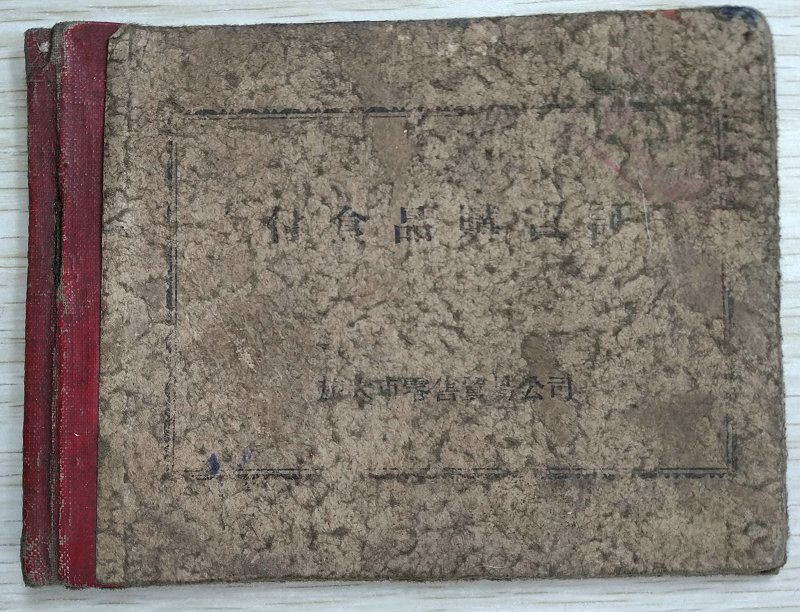 付食品購買証
旅大市零售貿易公司